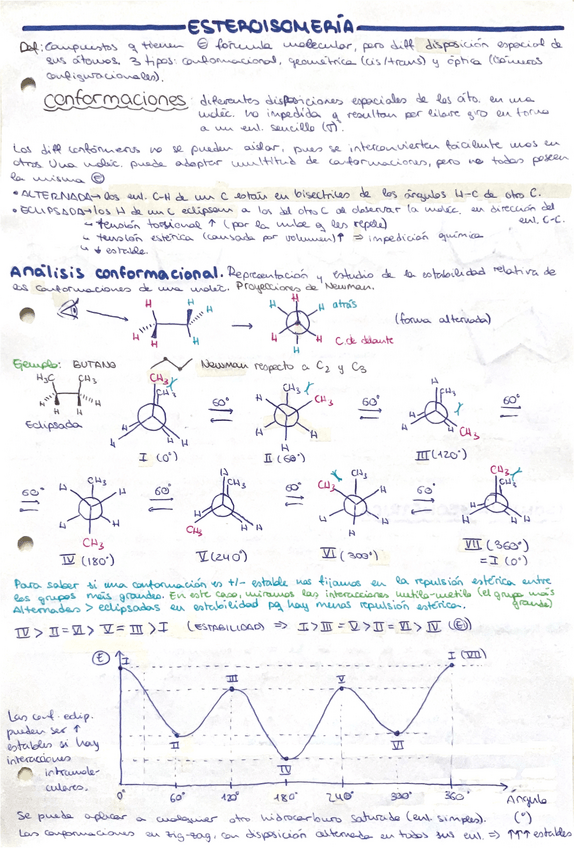 ESTEREOISOMERÍA
Def: Compuestos q tienen ⊜ fórmula molecular, pero diff disposición espacial de
sus átomos. 3 tipos: conformacional, geométrica (cis/trans) y óptica (isómeros
configuracionales).
conformaciones: diferentes disposiciones espaciales de los áto. en una
moléc. no impedida q resultan por libre giro en torno
a un enl. sencillo (σ).
Los diff confórmeros no se pueden aislar, pues se interconvierten fácilmente unos en
otros. Una moléc. puede adoptar multitud de conformaciones, pero no todas poseen
la misma Ⓔ
• ALTERNADA → los enl. C-H de un C están en bisectrices de los ángulos H-C de otro C.
• ECLIPSADA → los H de un C eclipsan a los del otro C al observar la moléc. en dirección del
enl. C-C.
tensión torsional ↑ (por la nube q les repele)
tensión estérica (causada por volumen) ↑ ⇒ impedición química
↓ estable.
Análisis conformacional. Representación y estudio de la estabilidad relativa de
las conformaciones de una moléc. Proyecciones de Newman.
H H H H H H
H H H H H H
atrás
C de delante
(forma alternada)
Ejemplo: BUTANO
Newman respecto a C2 y C3
H3C CH3
H H H H
Eclipsada
CH3 CH3 H H H H
I (0°)
60°
CH3 CH3 H H H H
II (60°)
60°
H CH3 H H H CH3
III (120°)
60°
60°
CH3 H H H H CH3
IV (180°)
60°
H CH3 H H H CH3
V (240°)
60°
CH3 CH3 H H H H
VI (300°)
60°
CH3 CH3 H H H H
VII (360°)
= I (0°)
Para saber si una conformación es +/- estable nos fijamos en la repulsión estérica entre
los grupos más grandes. En este caso, miramos las interacciones metilo-metilo (el grupo más
grande)
Alternadas > eclipsadas en estabilidad pq hay menos repulsión estérica.
IV > II = VI > V = III > I (ESTABILIDAD) ⇒ I > III = V > II = VI > IV (Ⓔ)
Ⓔ
I
II
III
IV
V
VI
I (VII)
Las conf. eclip.
pueden ser ↑
estables si hay
interacciones
intramole-
culares.
0° 60° 120° 180° 240° 300° 360°
Ángulo
(°)
Se puede aplicar a cualquier otro hidrocarburo saturado (enl. simples).
Las conformaciones en zig-zag, con disposición alternada en todos sus enl. ⇒ ↑↑↑ estables